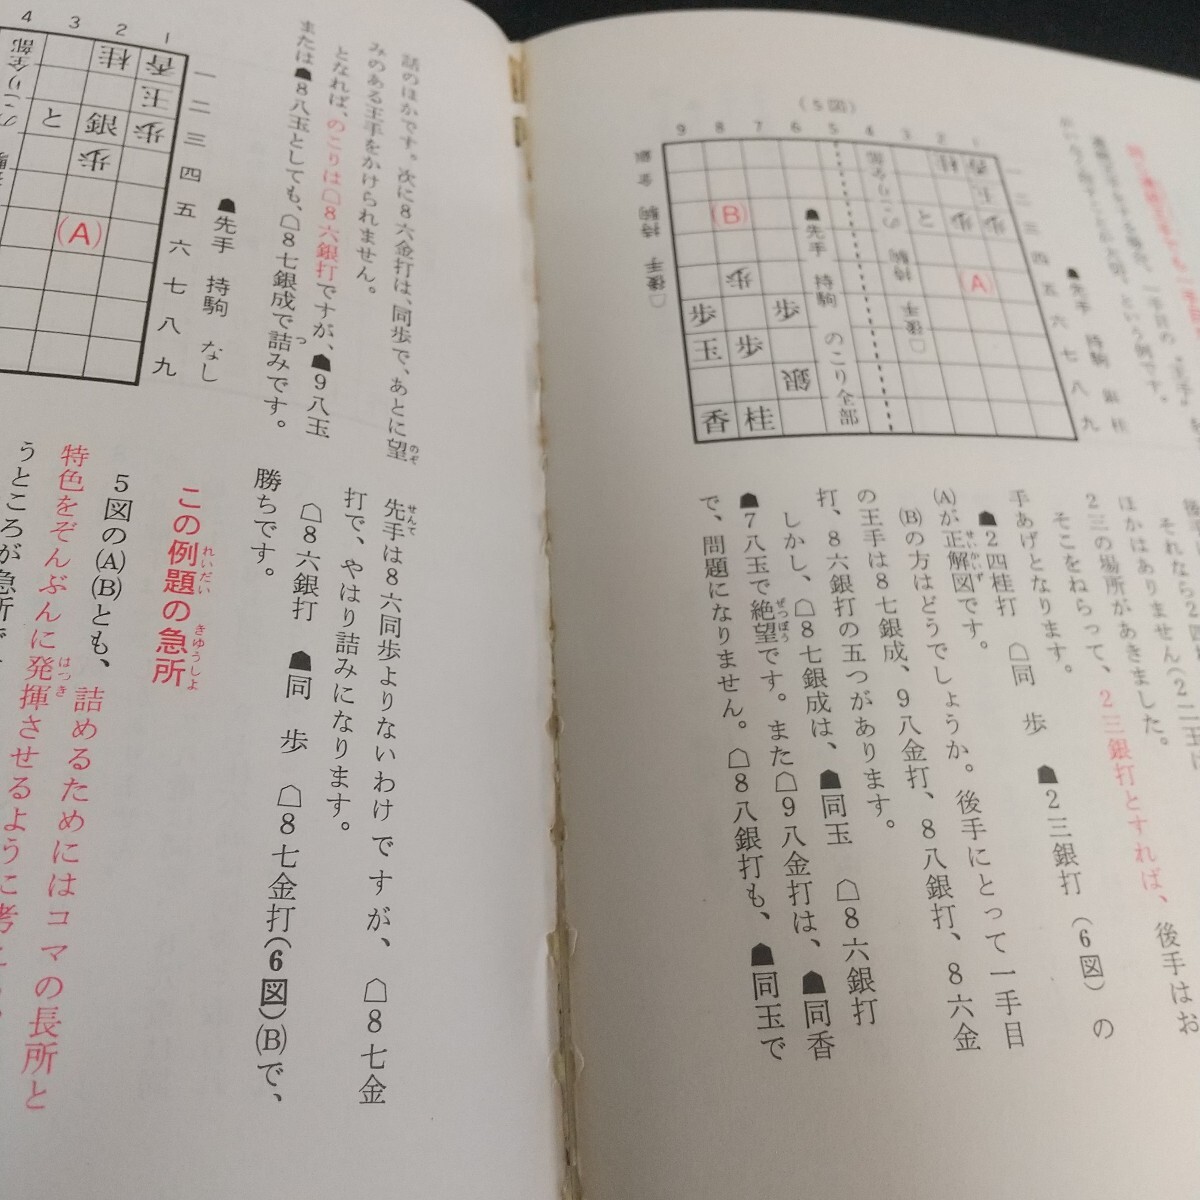 (5図)
9 8 7 6 5 4 3 2 1
一 二 三 四 五 六 七 八 九
(A)
(B)
☗先手 持駒 銀 桂
☗先手 持駒 のこり全部
歩 歩
玉 歩
銀
香 桂
それなら2四
ほかはありません(2二玉は
2三の場所があきました。
そこをねらって、2三銀打とすれば、後手はお
手あげとなります。
☗2四桂打 ☖同 歩 ☗2三銀打(6図)の
(A)が正解図です。
(B)の方はどうでしょうか。後手にとって一手目
の王手は8七銀成、9八金打、8八銀打、8六金
打、8六銀打の五つがあります。
しかし、☖8七銀成は、☗同玉 ☖8六銀打
☗7八玉で絶望です。また☖9八金打は、☗同香
で、問題になりません。☖8八銀打も、☗同玉で
話のほかです。次に8六金打は、同歩で、あとに望
みのある王手をかけられません。
となれば、のこりは☖8六銀打ですが、☗9八玉
または☗8八玉としても、☖8七銀成で詰みです。
4 3 2 1
一 二 三 四 五 六 七 八 九
(A)
☗先手 持駒 なし
先手は8六同歩よりないわけですが、☖8七金
打で、やはり詰みになります。
☖8六銀打 ☗同 歩 ☖8七金打(6図)(B)で、
勝ちです。
この例題の急所
5図の(A)(B)とも、詰めるためにはコマの長所と
特色をぞんぶんに発揮させるように考
うところが急所で